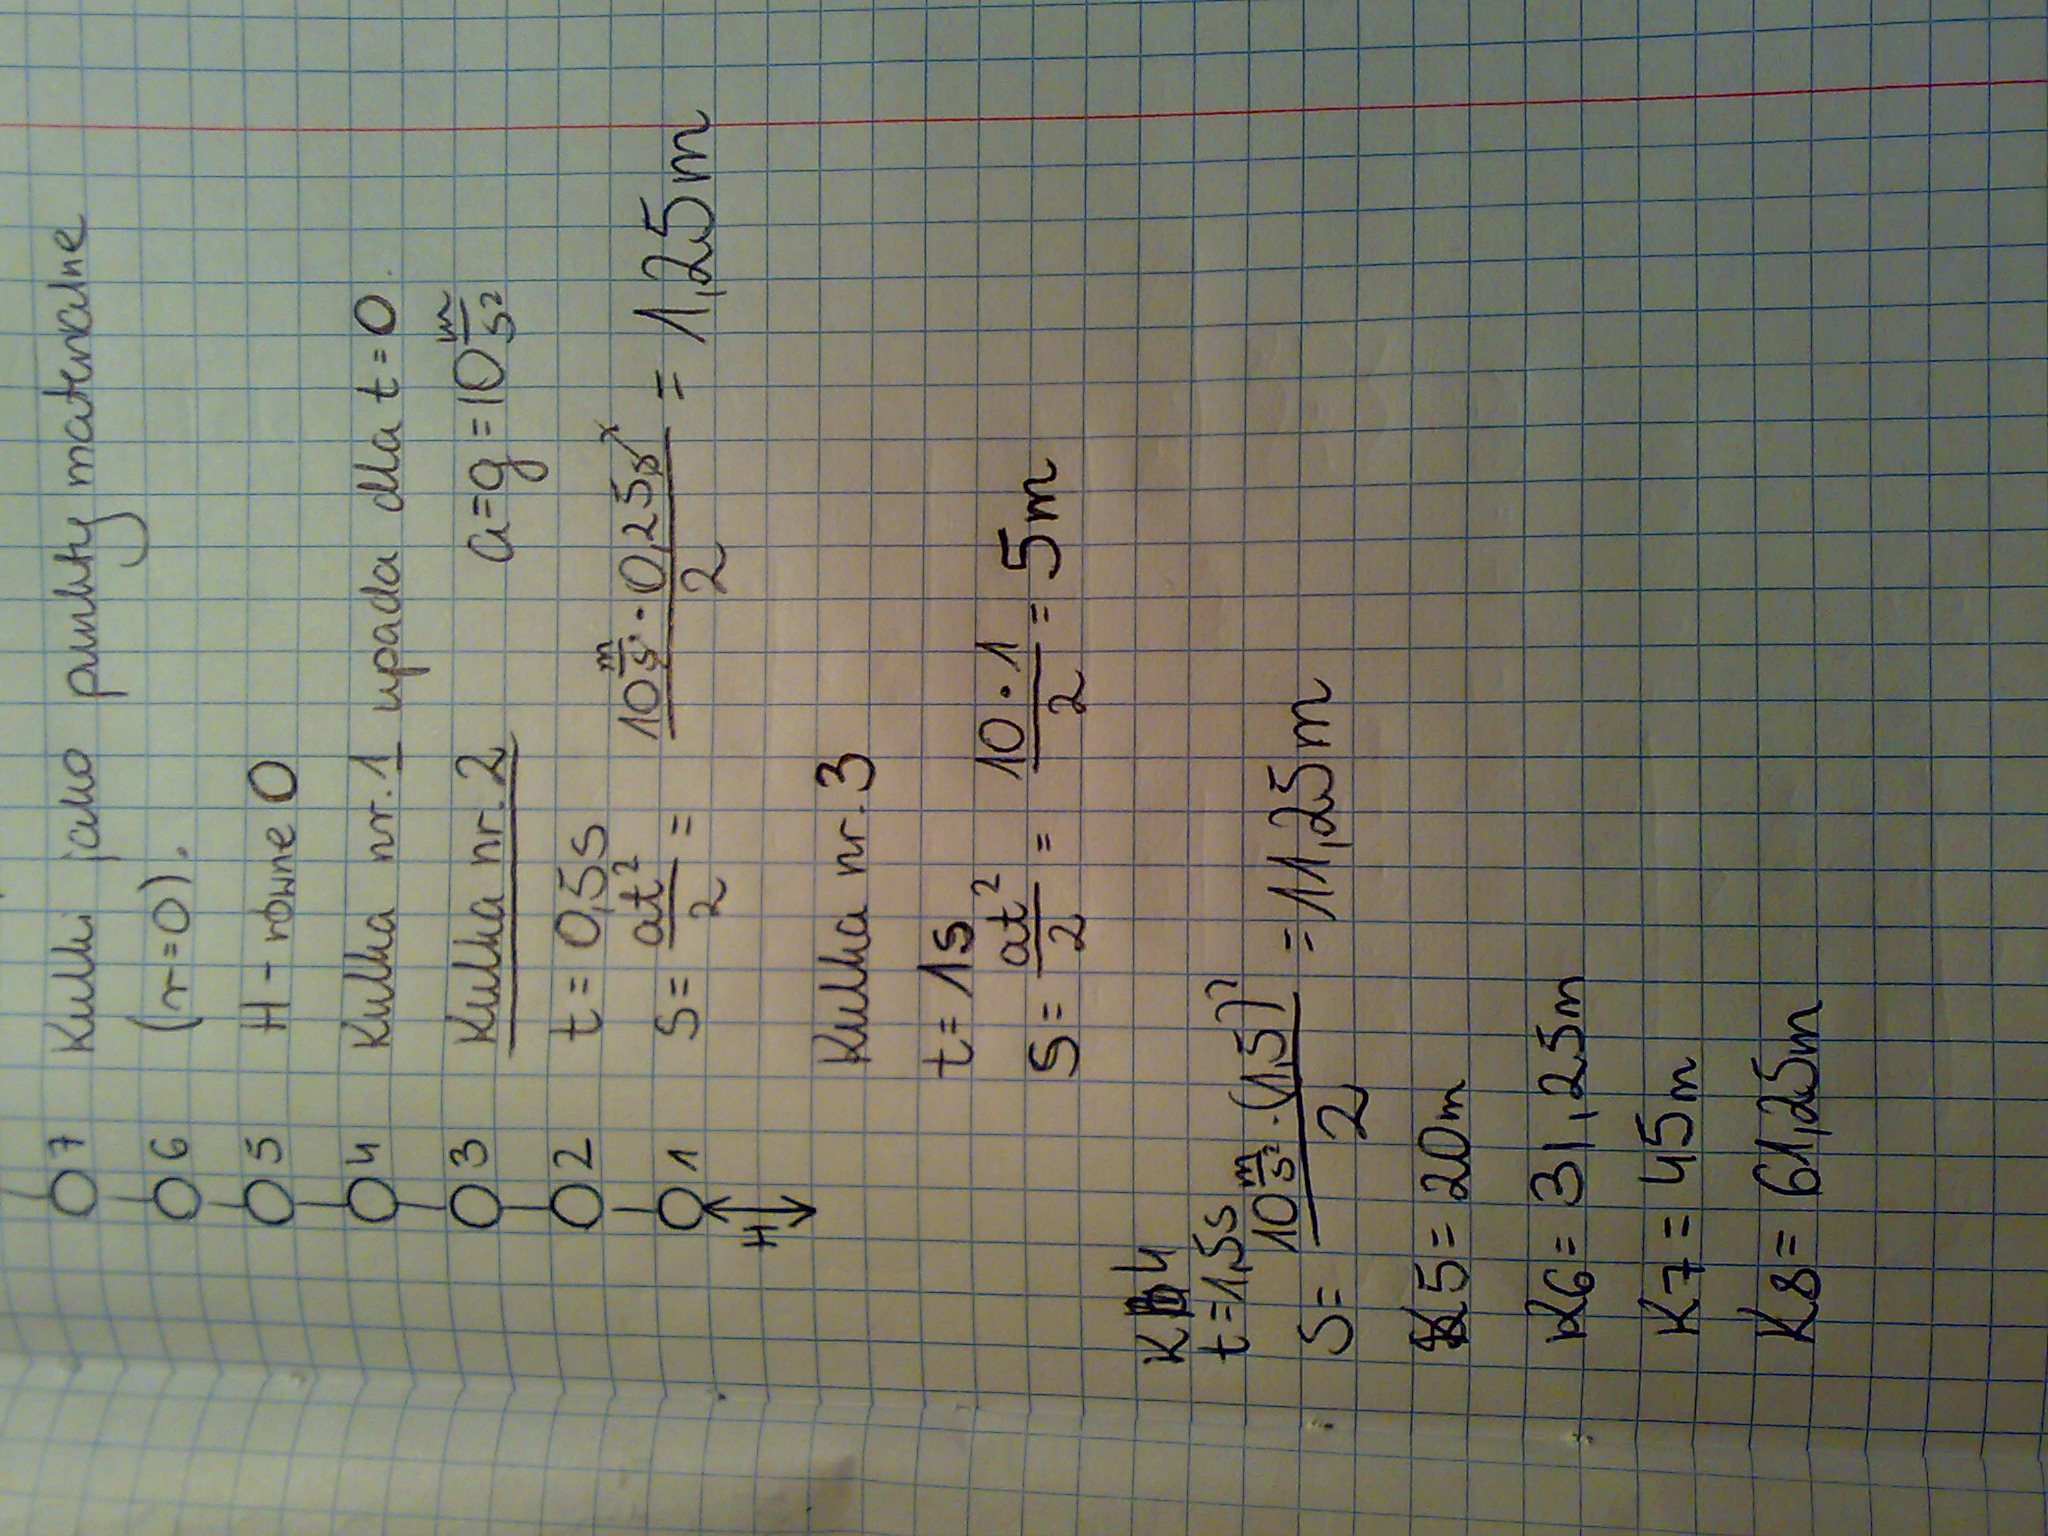 7 Kulki jako punkty materialne
6 (r=0).
5 H - równe 0
4 Kulka nr. 1 upada dla t=0
3 Kulka nr. 2 a=g=10 m/s²
2 t=0,5s
1 S= at²/2 = 10 m/s² · 0,25s²/2 = 1,25m
H
Kulka nr. 3
t= 1s
S= at²/2 = 10·1/2 = 5m
K 4
t=1,5s
S= 10 m/s² · (1,5)²/2 = 11,25m
K5= 20m
K6= 31,25m
K7= 45m
K8= 61,25m